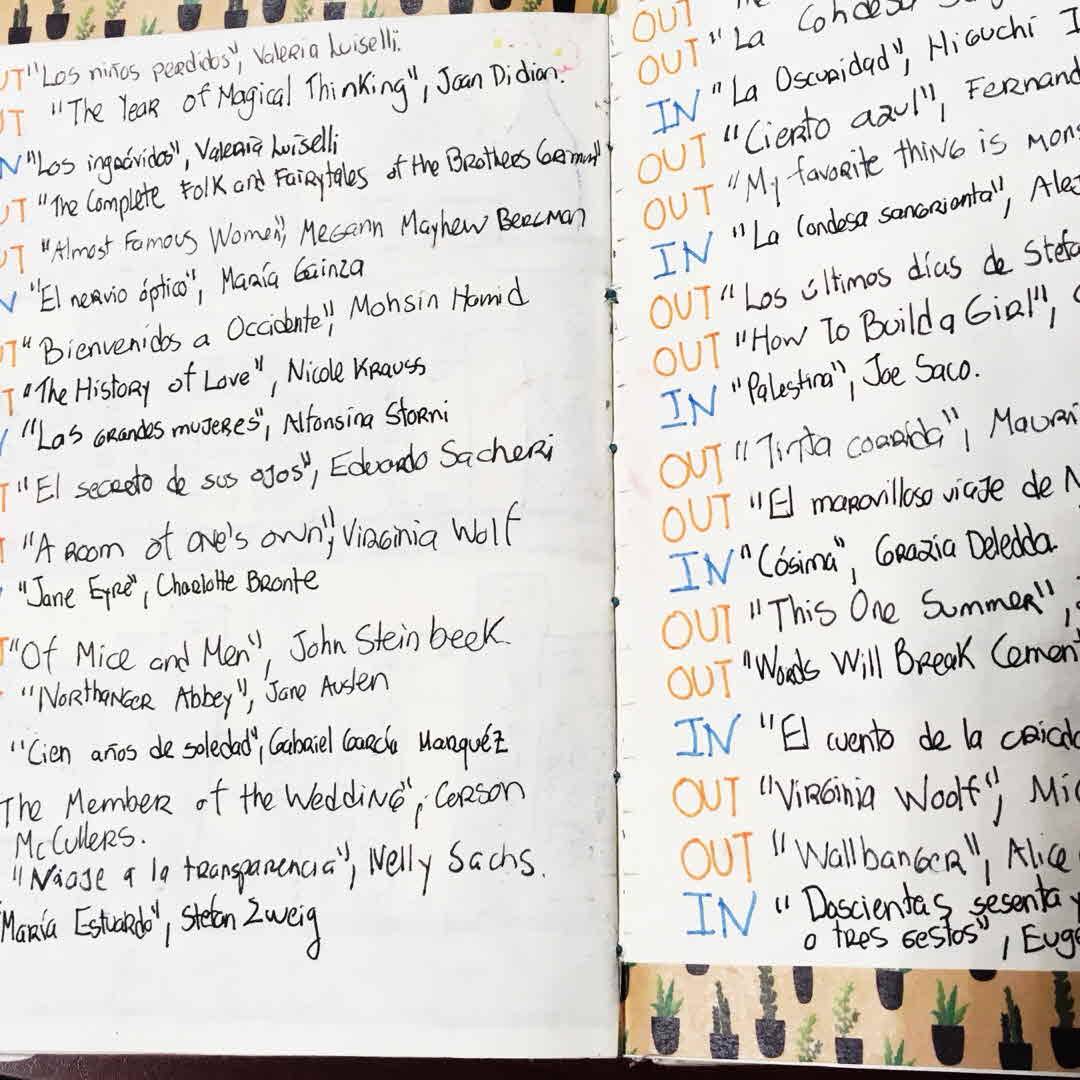 UT "Los niños perdidos", Valeria Luiselli.
UT "The Year of Magical Thinking", Joan Didion.
N "Los ingrávidos", Valeria Luiselli
UT "The Complete Folk and Fairytales of the Brothers Grimm"
UT "Almost Famous Women", Megann Mayhew Bergman
N "El nervio óptico", María Gainza
UT "Bienvenidos a Occidente", Mohsin Hamid
T "The History of Love", Nicole Krauss
"Las grandes mujeres", Alfonsina Storni
T "El secreto de sus ojos", Eduardo Sacheri
"A room of one's own", Virginia Wolf
"Jane Eyre", Charlotte Bronte
T "Of Mice and Men", John Steinbeek.
"Northanger Abbey", Jane Austen
"Cien años de soledad", Gabriel García Marquéz
The Member of the Wedding", Cerson
McCullers.
"Viaje a la transparencia", Nelly Sachs.
"María Estuardo", Stefan Zweig
OUT
OUT "La Condesa
IN "La Oscuridad", Higuchi I
OUT "Cierto azul", Fernand
OUT "My favorite thing is mons
IN "La Condesa sangrienta", Ale
OUT "Los últimos días de Stefa
OUT "How To Build a Girl",
IN "Palestina", Joe Saco.
OUT "Tinta corrida", Mauri
OUT "El maravilloso viaje de N
IN "Cósima", Grazia Deledda.
OUT "This One Summer",
OUT "Words Will Break Cement
IN "El cuento de la criada
OUT "Virginia Woolf", Mic
OUT "Wallbanger", Alice
IN "Doscientas sesenta y
o tres gestos", Euge